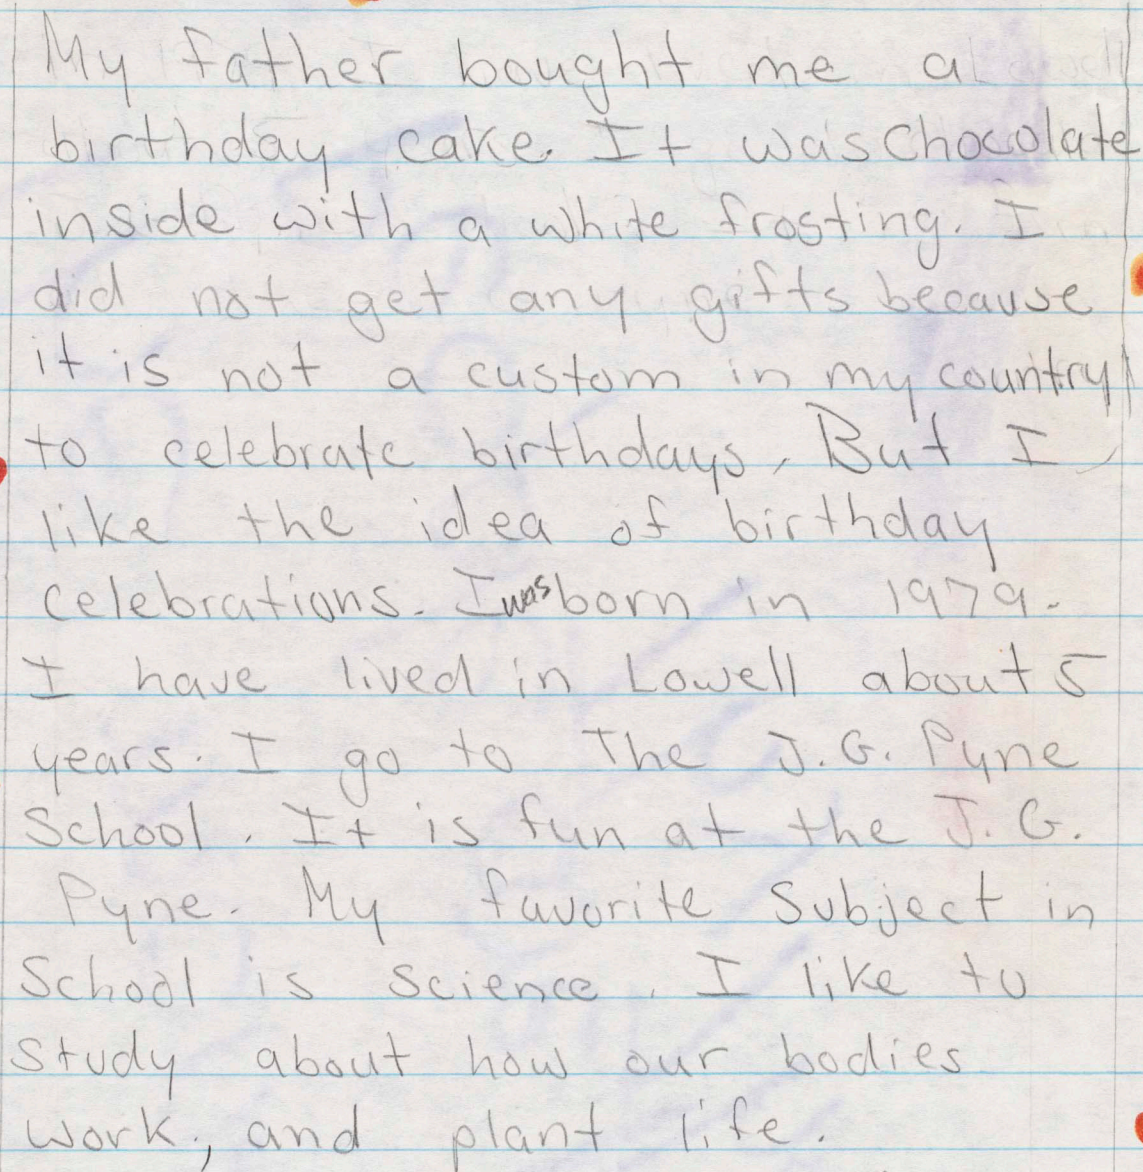 My father bought me a
birthday cake. It was chocolate
inside with a white frosting. I
did not get any gifts because
it is not a custom in my country
to celebrate birthdays. But I
like the idea of birthday
celebrations. I was born in 1979.
I have lived in Lowell about 5
years. I go to The J.G. Pyne
School. It is fun at the J.G.
Pyne. My favorite Subject in
School is science. I like to
study about how our bodies
work, and plant life.